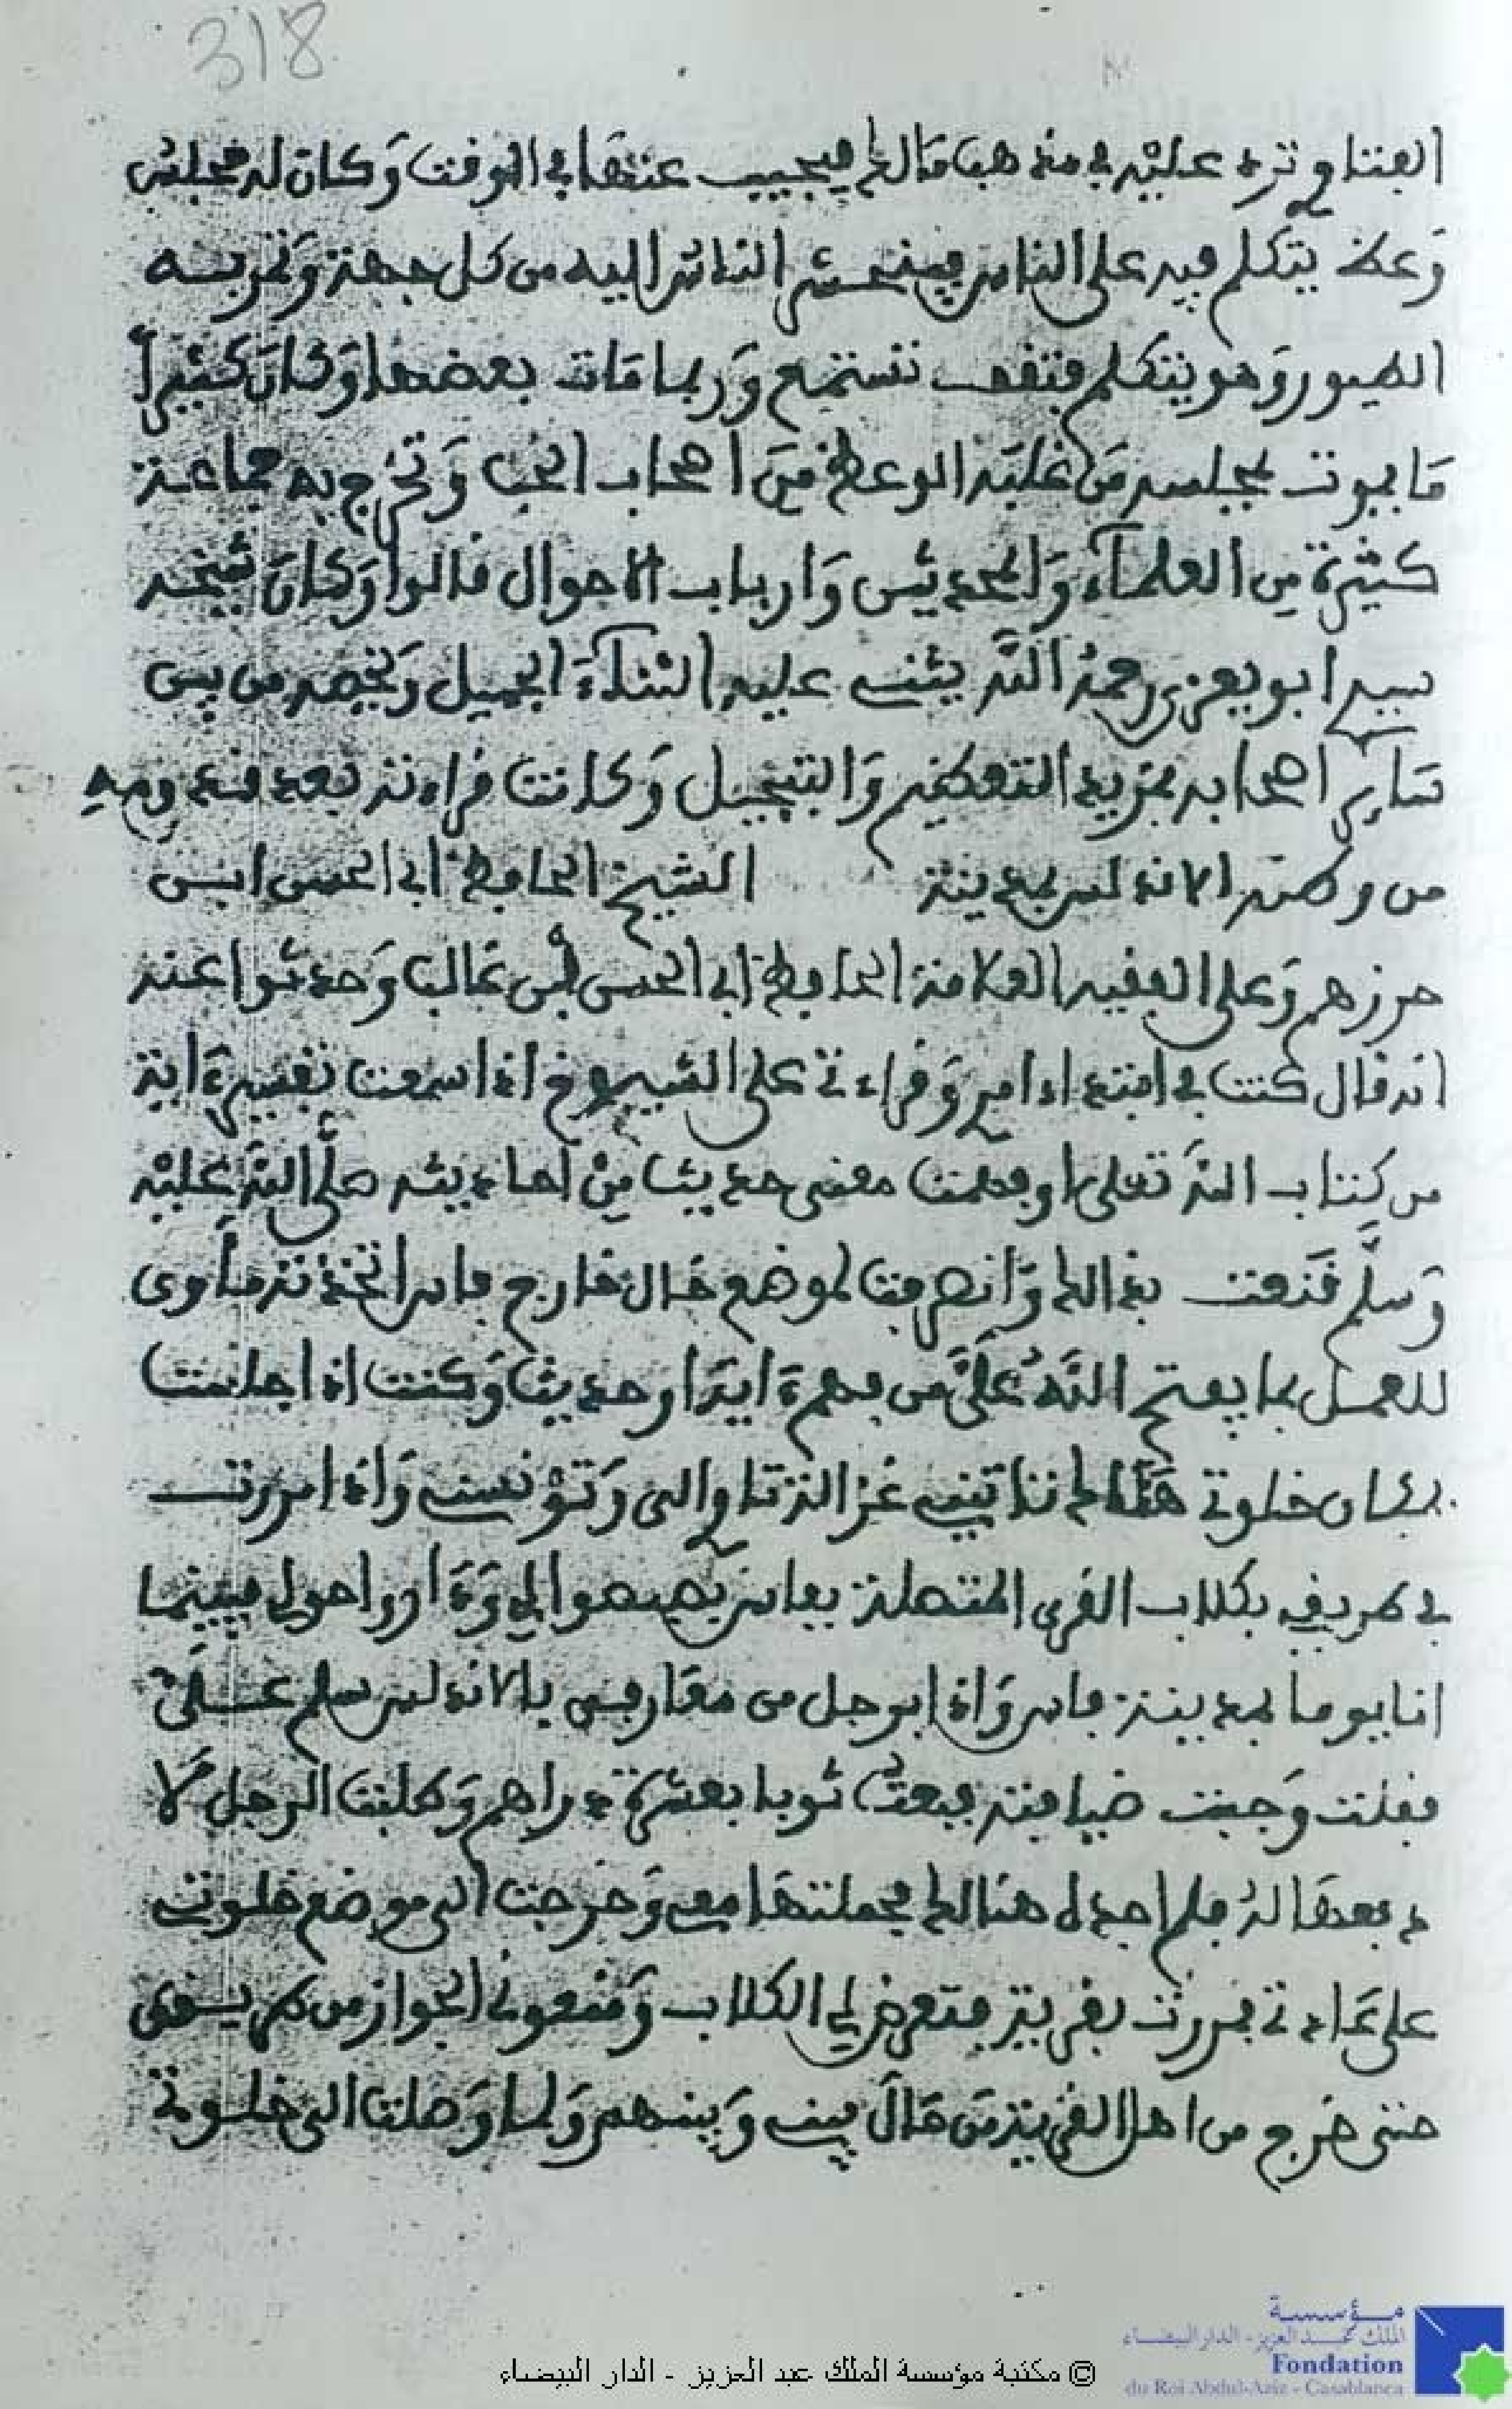 318
الفتاوي ترد عليه في مذهب مالك فيجيب عنها في الوقت وكان له مجلس
وعظ يتكلم فيه على الناس فينحشر الناس اليه من كل جهة وتمر به
الطيور وهو يتكلم فتقف تستمع وربما مات بعضها وكان كثيرا
ما يموت بمجلسه من غلبه الوعظ من اصحاب الحب وتخرج به جماعة
كثيرة من العلماء والمحدثين وارباب الاحوال قالوا وكان شيخه
سيدي ابو يعزى رحمه الله يثني عليه الثناء الجميل ويخصه من بين
سائر اصحابه بمزيد التعظيم والتبجيل وكانت قراءته بعد قدومه
من وطنه الاندلس بمدينة الشيخ الحافظ ابي الحسن ابن
حرزهم وعلى الفقيه العلامة الحافظ ابي الحسن ابن غالب وحدثوا عنه
انه قال كنت في ابتداء امري وقراءتي على الشيوخ اذا سمعت تفسير ءاية
من كتاب الله تعلى او فهمت معنى حديث من احاديثه صلى الله عليه
وسلم قنعت بذالك وانصرفت لموضع خال خارج فاس اتخذته مأوى
للعمل بما يفتح الله علي من فهم ءاية او حديث وكنت اذا جلست
بمكان خلوتي هنالك تاتيني غزالة تاوي الي وتؤنسني واذا مررت
في طريقي بكلاب القرى المتصلة بفاس يبصبصوا لي وداروا حولي فبينما
انا يوما بمدينة فاس واذا برجل من معارفي بالاندلس سلم علي
فقلت وجبت ضيافته فبعت ثوبا بعشرة دراهم وطلبت الرجل لا
دفعها له فلم اجده هنالك فحملتها معي وخرجت الى موضع خلوتي
على عادتي فمررت بقرية فتعرض لي الكلاب ومنعوني الجواز من طريقي
حتى خرج من اهل القرية من حال بيني وبينهم ولما وصلت الى خلوتي
© مكتبة مؤسسة الملك عبد العزيز - الدار البيضاء
مؤسسة
الملك عبد العزيز - الدار البيضاء
Fondation
du Roi Abdul-Aziz - Casablanca